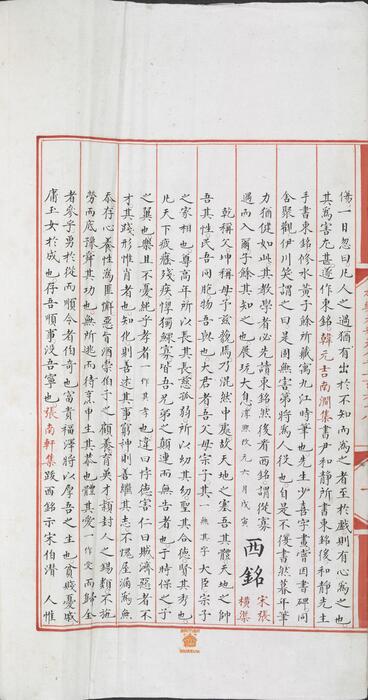 傷一日忽曰凡人之過猶有出於不知而為之者至於戲則有心為之也
其為害尤甚遂作東銘韓元吉南澗集書尹和靖所書東銘後和靖先生
手書東銘修水黃子餘所藏寓九江時筆也先生少喜字畫嘗因書碑同
舍聚觀伊川笑謂之曰是固無害第將為人役也自是不復書然暮年筆
力猶健如此其教學者必先讀東銘然後看西銘謂從寡
過而入爾子餘其知之也展玩大息淳熙改元六月戊寅 西銘 宋張橫渠
乾稱父坤稱母予茲藐焉乃混然中處故天地之塞吾其體天地之帥
吾其性民吾同胞物吾與也大君者吾父母宗子其一無其字大臣宗子
之家相也尊高年所以長其長慈孤弱所以幼其幼聖其合德賢其秀也
凡天下疲癃殘疾惸獨鰥寡皆吾兄弟之顛連而無告者也于時保之子
之翼也樂且不憂純乎孝者一作其孝也違曰悖德害仁曰賊濟惡者不
才其踐形惟肖者也知化則善述其事窮神則善繼其志不愧屋漏為無
忝存心養性為匪懈惡旨酒崇伯子之顧養育英才頴封人之錫類不弛
勞而底豫舜其功也無所逃而待烹申生其恭也體其受一作愛而歸全
者參乎勇於從而順令者伯奇也富貴福澤將以厚吾之生也貧賤憂戚
庸玉女於成也存吾順事沒吾寧也張南軒集跋西銘示宋伯潛 人惟